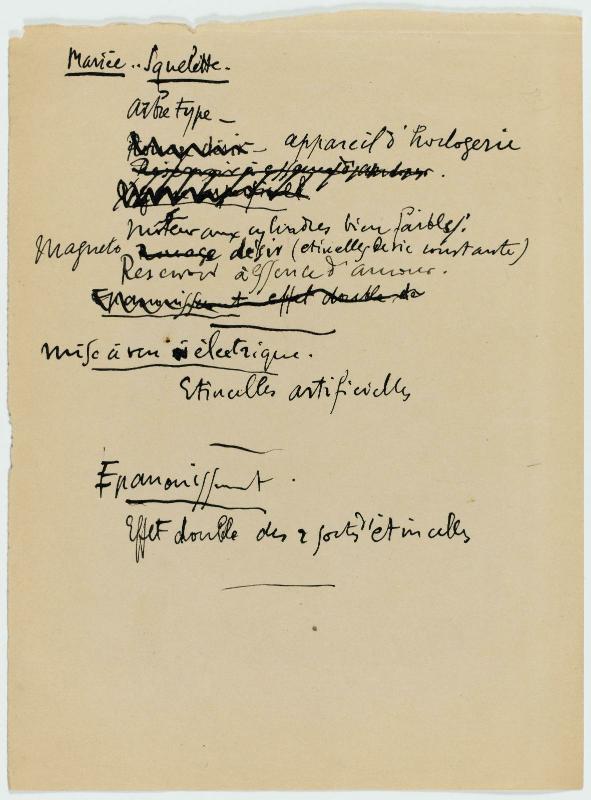 Mariée .. Squelette.
Arbre type_
appareil d'horlogerie
Moteur aux cylindres bien faibles.
Magneto désir (etincelles de vie constante)
Reservoir à essence d'amour.
mise à nu électrique.
Etincelles artificielles
Epanouissement.
Effet double des 2 sortes d'étincelles